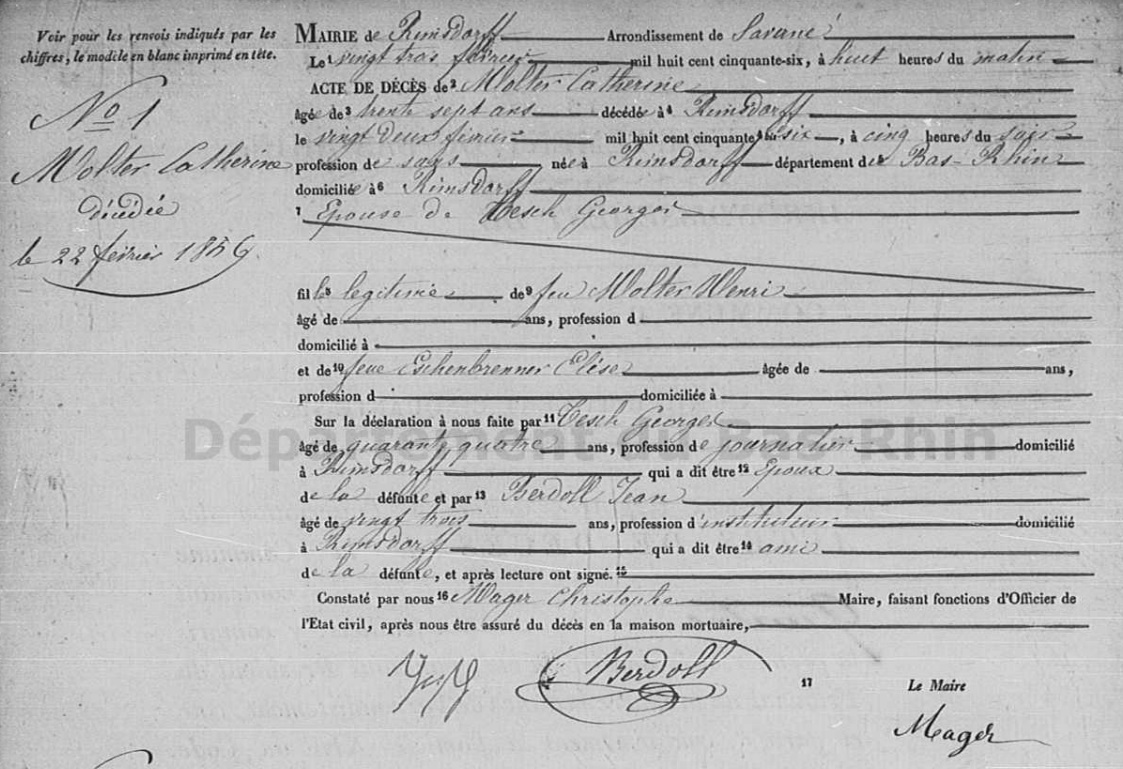 Voir pour les renvois indiqués par les
chiffres, le modèle en blanc imprimé en tête.
No 1
Wolter Catherine
décédée
le 22 février 1856.
MAIRIE de Rimsdorff Arrondissement de Savane
Le 1 vingt trois février mil huit cent cinquante-six, à huit heures du matin
ACTE DE DÉCÈS de 2 Wolter Catherine
âgée de 3 trente sept ans décédée à 4 Rimsdorff
le vingt deux février mil huit cent cinquante six, à cinq heures du soir
profession de sans née à Rimsdorff département de 5 Bas-Rhin
domiciliée à 6 Rimsdorff
7 Epouse de Tesch Georges
fille 8 legitime de 9 feu Wolter Henri
âgé de ans, profession d
domicilié à
et de 10 feue Eschenbrenner Elise âgée de ans,
profession d domiciliée à
Sur la déclaration à nous faite par 11 Tesch Georges
âgé de quarante quatre ans, profession de journalier domicilié
à Rimsdorff qui a dit être 12 Epoux
de la défunte et par 13 Berdoll Jean
âgé de vingt trois ans, profession d'instituteur domicilié
à Rimsdorff qui a dit être 14 ami
de la défunte, et après lecture ont signé. 15
Constaté par nous 16 Mager Christophe Maire, faisant fonctions d'Officier de
l'Etat civil, après nous être assuré du décès en la maison mortuaire,
Berdoll
17 Le Maire
Mager
Département du Bas-Rhin